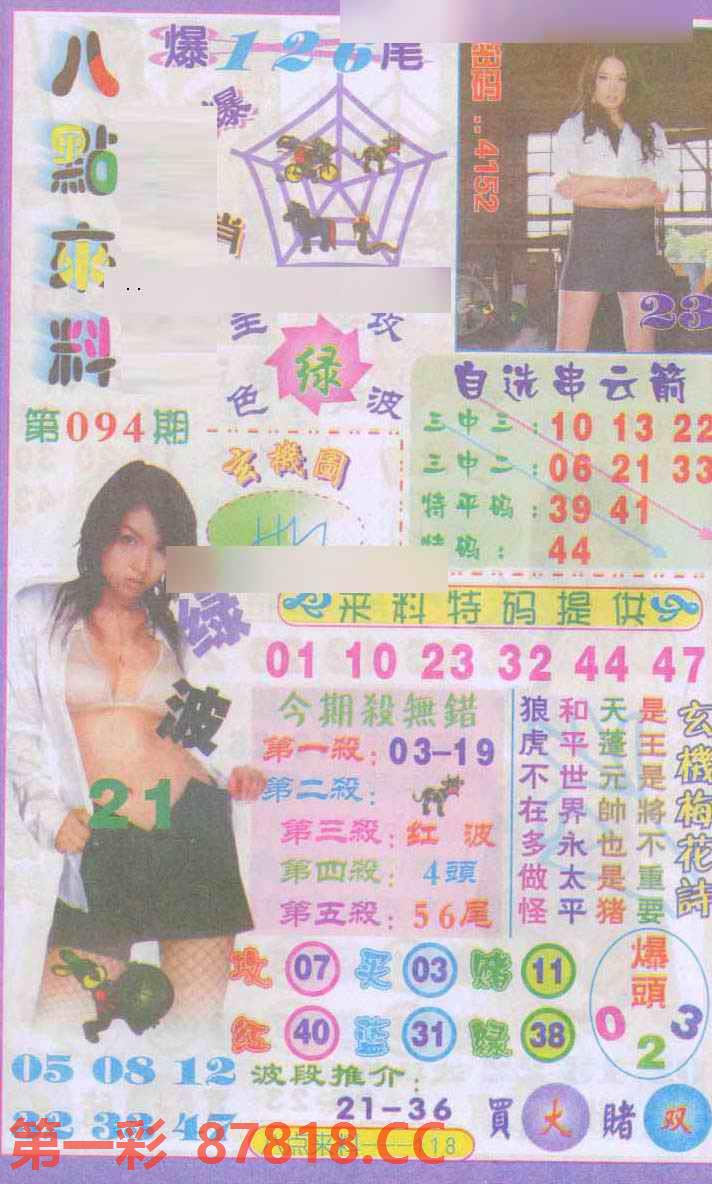 八點來料
爆126尾
爆
肖
密码:4152
23
主 攻
绿
色 波
第094期
玄機圖
自选串云箭
三中三:10 13 22
三中二:06 21 33
特平码:39 41
特码:44
来料特码提供
01 10 23 32 44 47
绿波
21
今期殺無錯
第一殺:03-19
第二殺:
第三殺:红波
第四殺:4頭
第五殺:56尾
玄機梅花詩
是王是將不重要
天蓬元帥也是猪
和平世界永太平
狼虎不在多做怪
攻 07 买 03 赌 11
红 40 蓝 31 绿 38
爆頭
0 2 3
05 08 12
22 32 47
波段推介:
21-36
買 火 賭 双
第一彩 87818.CC